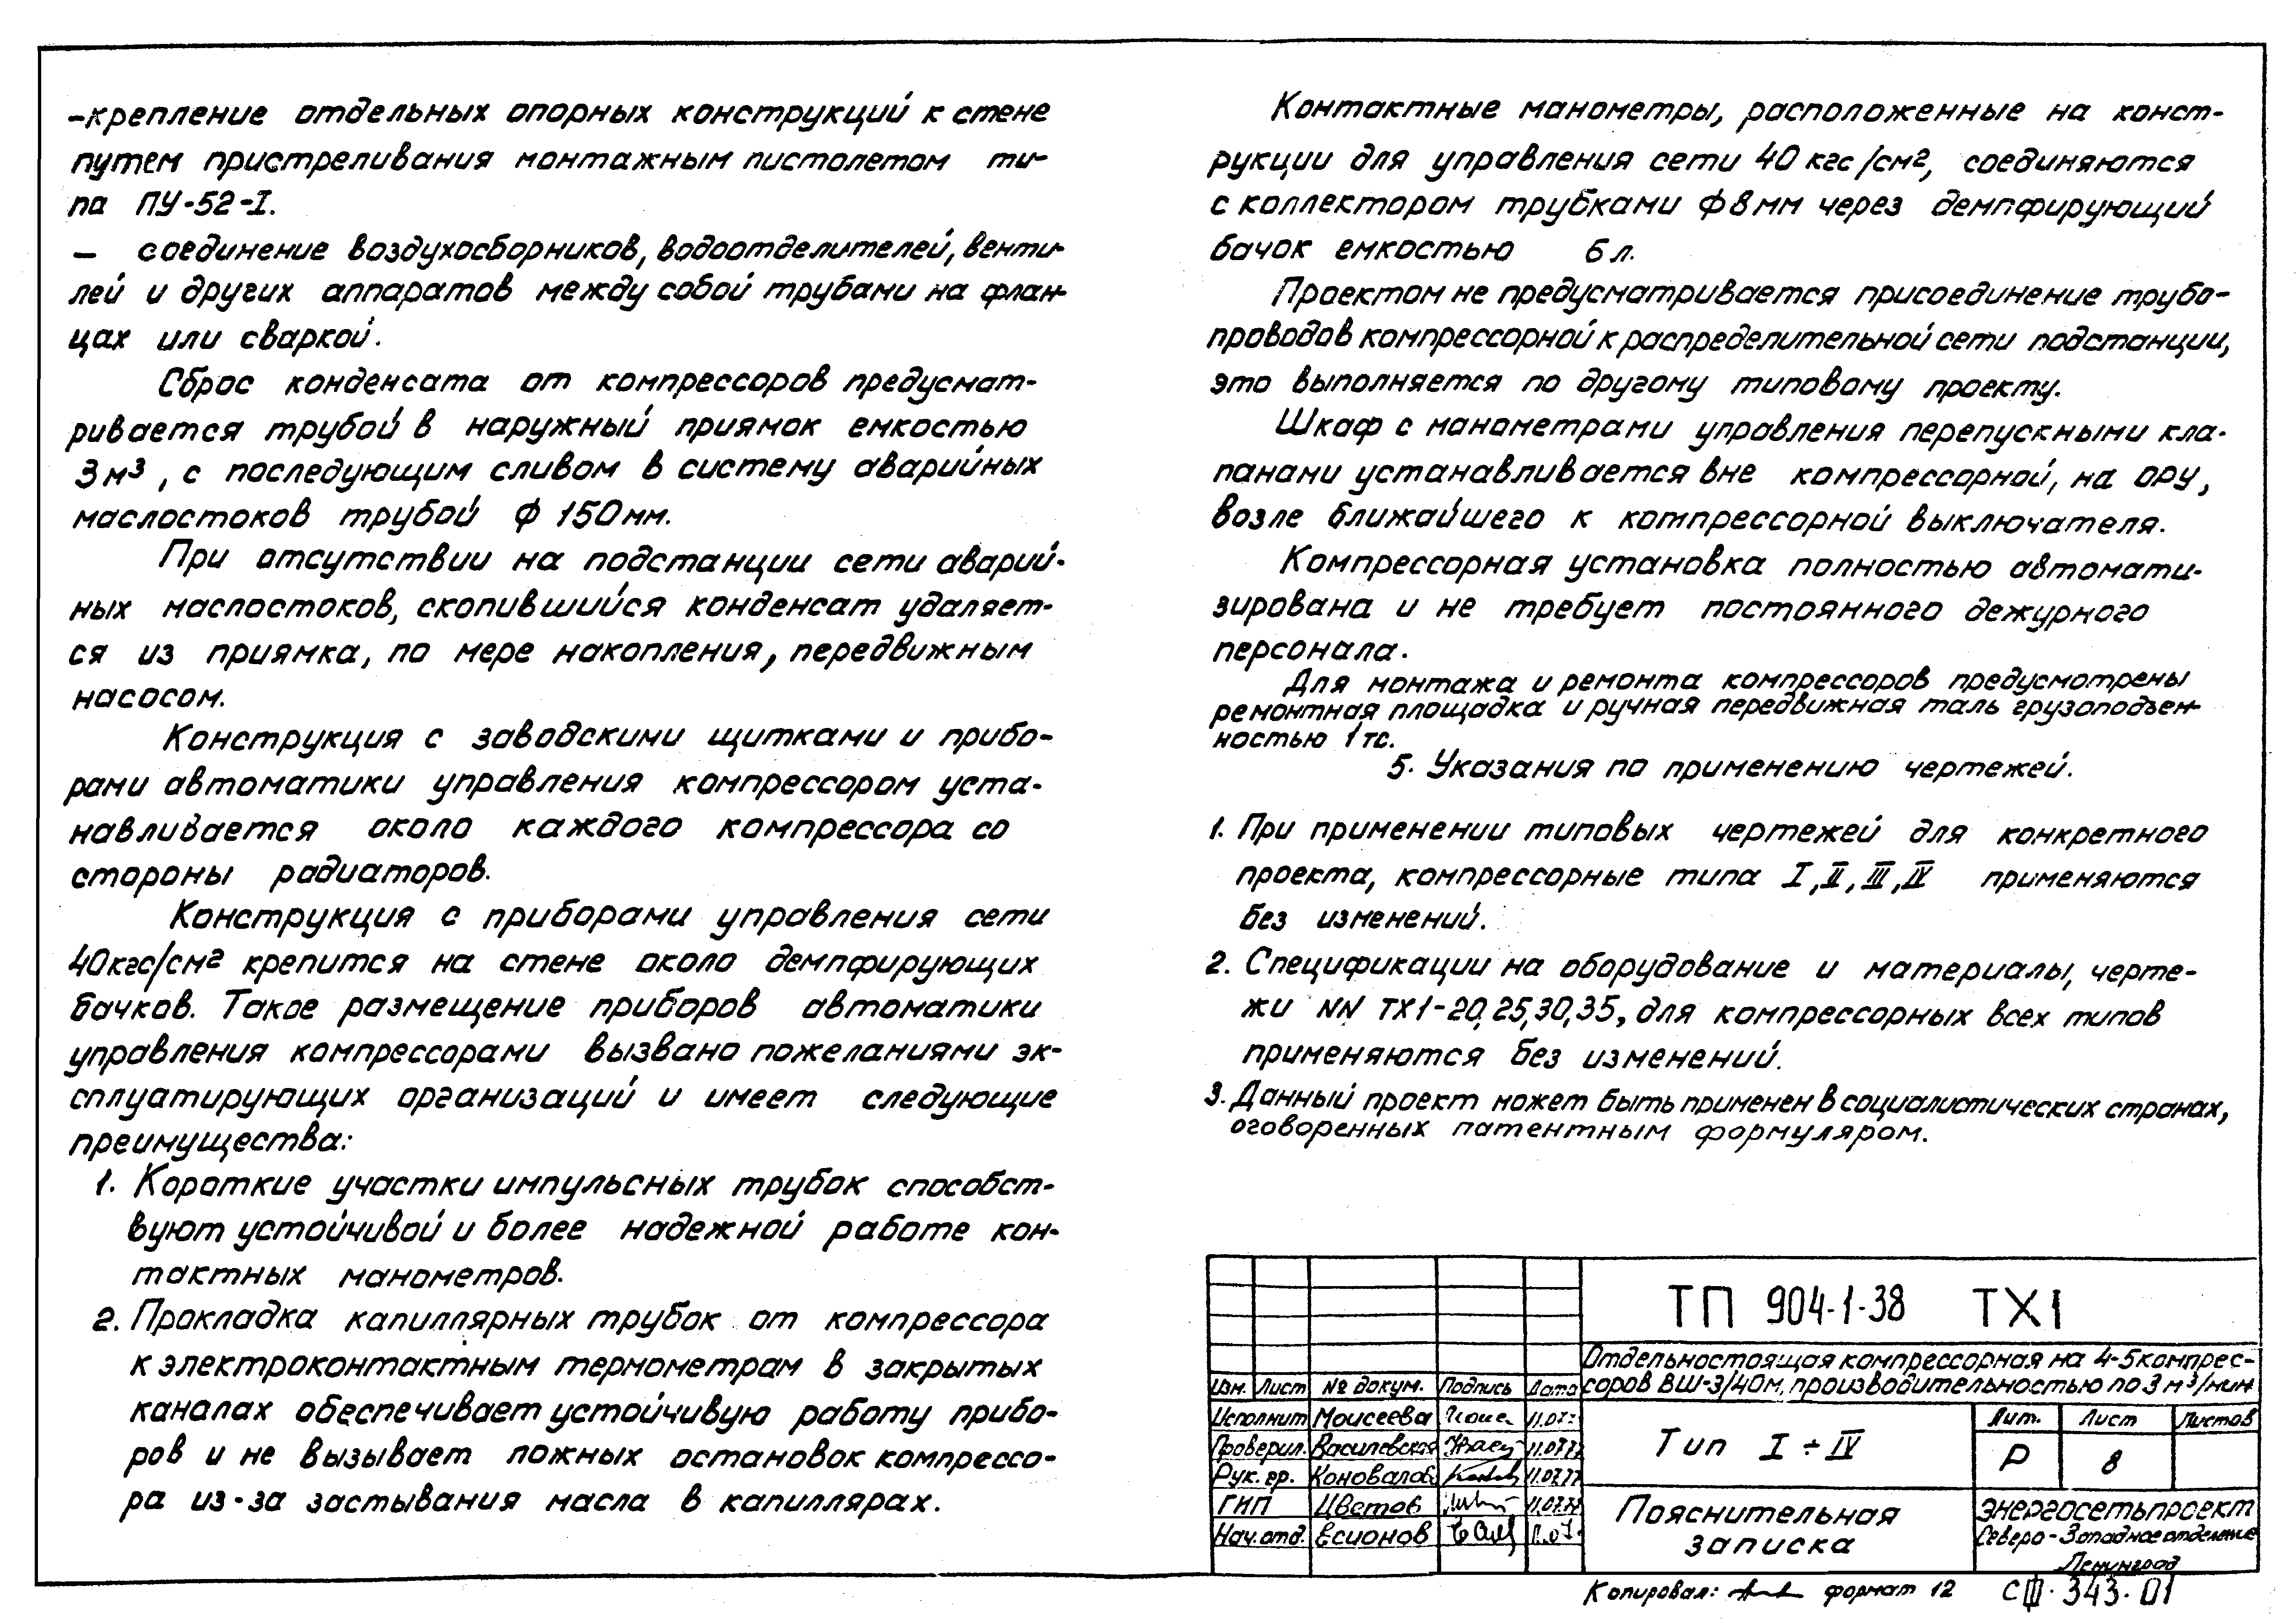 -крепление отдельных опорных конструкций к стене
путем пристреливания монтажным пистолетом ти-
па ПУ-52-I.
— соединение воздухосборников, водоотделителей, венти-
лей и других аппаратов между собой трубами на флан-
цах или сваркой.
Сброс конденсата от компрессоров предусмат-
ривается трубой в наружный приямок емкостью
3 м³, с последующим сливом в систему аварийных
маслостоков трубой ф 150 мм.
При отсутствии на подстанции сети аварий-
ных маслостоков, скопившийся конденсат удаляет-
ся из приямка, по мере накопления, передвижным
насосом.
Конструкция с заводскими щитками и прибо-
рами автоматики управления компрессором уста-
навливается около каждого компрессора со
стороны радиаторов.
Конструкция с приборами управления сети
40кгс/см² крепится на стене около демпфирующих
бачков. Такое размещение приборов автоматики
управления компрессорами вызвано пожеланиями эк-
сплуатирующих организаций и имеет следующие
преимущества:
1. Короткие участки импульсных трубок способст-
вуют устойчивой и более надежной работе кон-
тактных манометров.
2. Прокладка капиллярных трубок от компрессора
к электроконтактным термометрам в закрытых
каналах обеспечивает устойчивую работу прибо-
ров и не вызывает ложных остановок компрессо-
ра из-за застывания масла в капиллярах.
Контактные манометры, расположенные на конст-
рукции для управления сети 40 кгс/см², соединяются
с коллектором трубками ф 8 мм через демпфирующий
бачок емкостью 6 л.
Проектом не предусматривается присоединение трубо-
проводов компрессорной к распределительной сети подстанции,
это выполняется по другому типовому проекту.
Шкаф с манометрами управления перепускными кла-
панами устанавливается вне компрессорной, на ОРУ,
возле ближайшего к компрессорной выключателя.
Компрессорная установка полностью автомати-
зирована и не требует постоянного дежурного
персонала.
Для монтажа и ремонта компрессоров предусмотрены
ремонтная площадка и ручная передвижная таль грузоподъем-
ностью 1 тс.
5. Указания по применению чертежей.
1. При применении типовых чертежей для конкретного
проекта, компрессорные типа I, II, III, IV применяются
без изменений.
2. Спецификации на оборудование и материалы, черте-
жи NN ТХ1-20,25,30,35, для компрессорных всех типов
применяются без изменений.
3. Данный проект может быть применен в социалистических странах,
оговоренных патентным формуляром.
ТП 904-1-38 ТХ1
Отдельностоящая компрессорная на 4-5 компрес-
соров ВШ-3/40м, производительностью по 3 м³/мин
Изм. Лист № докум. Подпись Дата
Исполнит. Моисеева
Проверил. Василевская 11.07.77
Рук. гр. Коновалов 11.07.77
ГИП Цветов
Нач. отд. Есионов
Тип I ÷ IV
Лит. Лист Листов
Р 8
Пояснительная
записка
Энергосетьпроект
Северо-Западное отделение
Ленинград
Копировал: формат 12
СФ 343-01